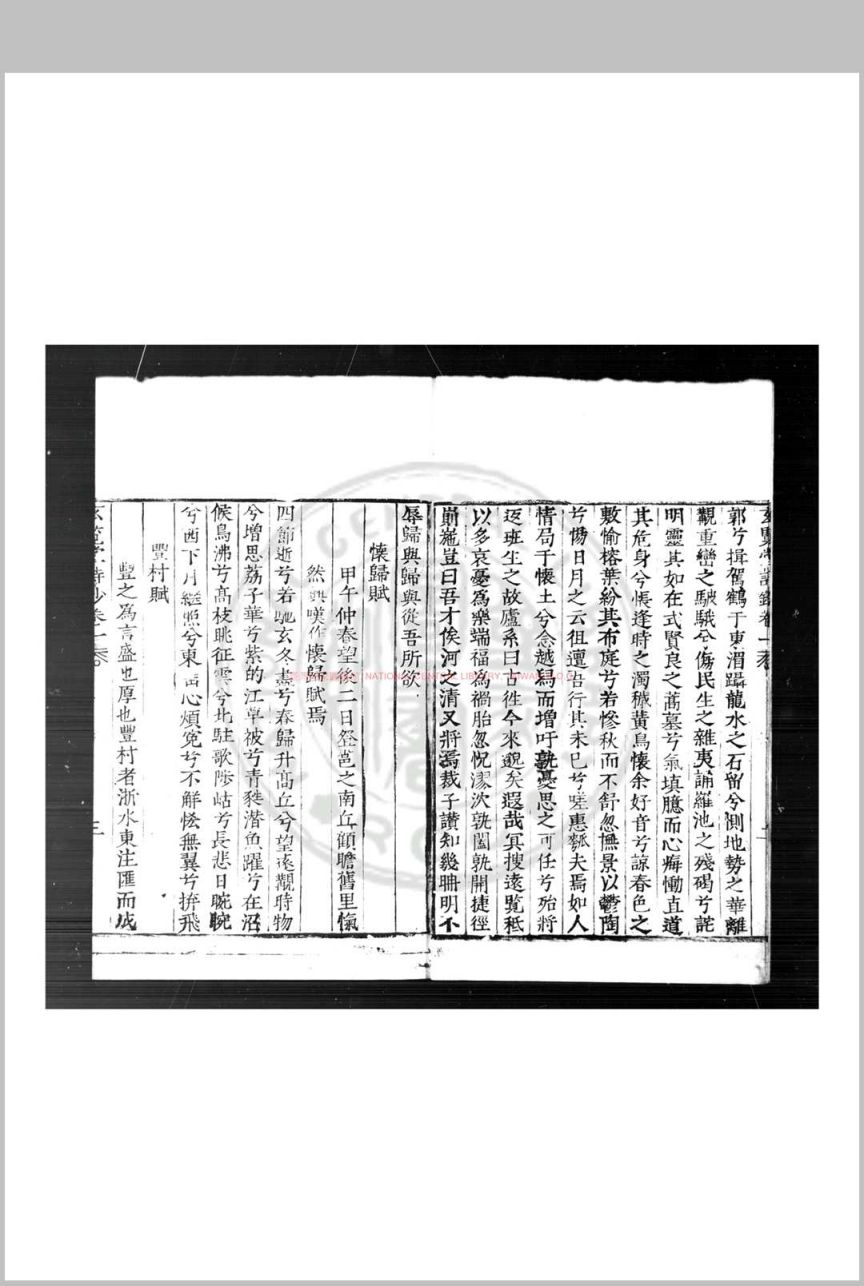 郭兮揖駕鶴于東渭躡龍水之石留兮惻地勢之華離
觀重巒之駊騀兮傷民生之雜夷誦羅池之殘碣兮詫
明靈其如在式賢良之蒿墓兮氣填臆而心痗慟直道
其危身兮悵逢時之濁穢黃鳥懷余好音兮諒春色之
敷愉榕葉紛其布庭兮若慘秋而不舒忽憮景以鬱陶
兮傷日月之云徂邅吾行其未已兮嗟惠瓤夫焉如人
情局于懷土兮念越舄而增吁孰憂思之可任兮殆將
返班生之故廬系曰古徃今來邈矣遐哉冥搜遠覧秪
以多哀憂為樂端福為禍胎忽怳漻泬孰闔孰開捷徑
崱嶷豈曰吾才俟河之清又將焉裁子讃知幾毌明不
辱歸與歸與從吾所欲
懷歸賦
甲午仲春望後二日登邕之南丘顧瞻舊里愾
然興嘆作懷歸賦焉
四節逝兮若馳玄冬盡兮春歸升高丘兮望遠覩時物
兮增思荔子華兮紫的江草被兮青㽔潛魚躍兮在沼
候鳥沸兮高枝眺征雲兮北駐歌陟岵兮長悲日晼晚
兮西下月繼照兮東 心煩寃兮不解恠無翼兮拚飛
豐村賦
豐之為言盛也厚也豐村者浙水東注匯而成
玄覽堂詩鈔卷一
三
NATIONAL CENTRAL LIBRARY